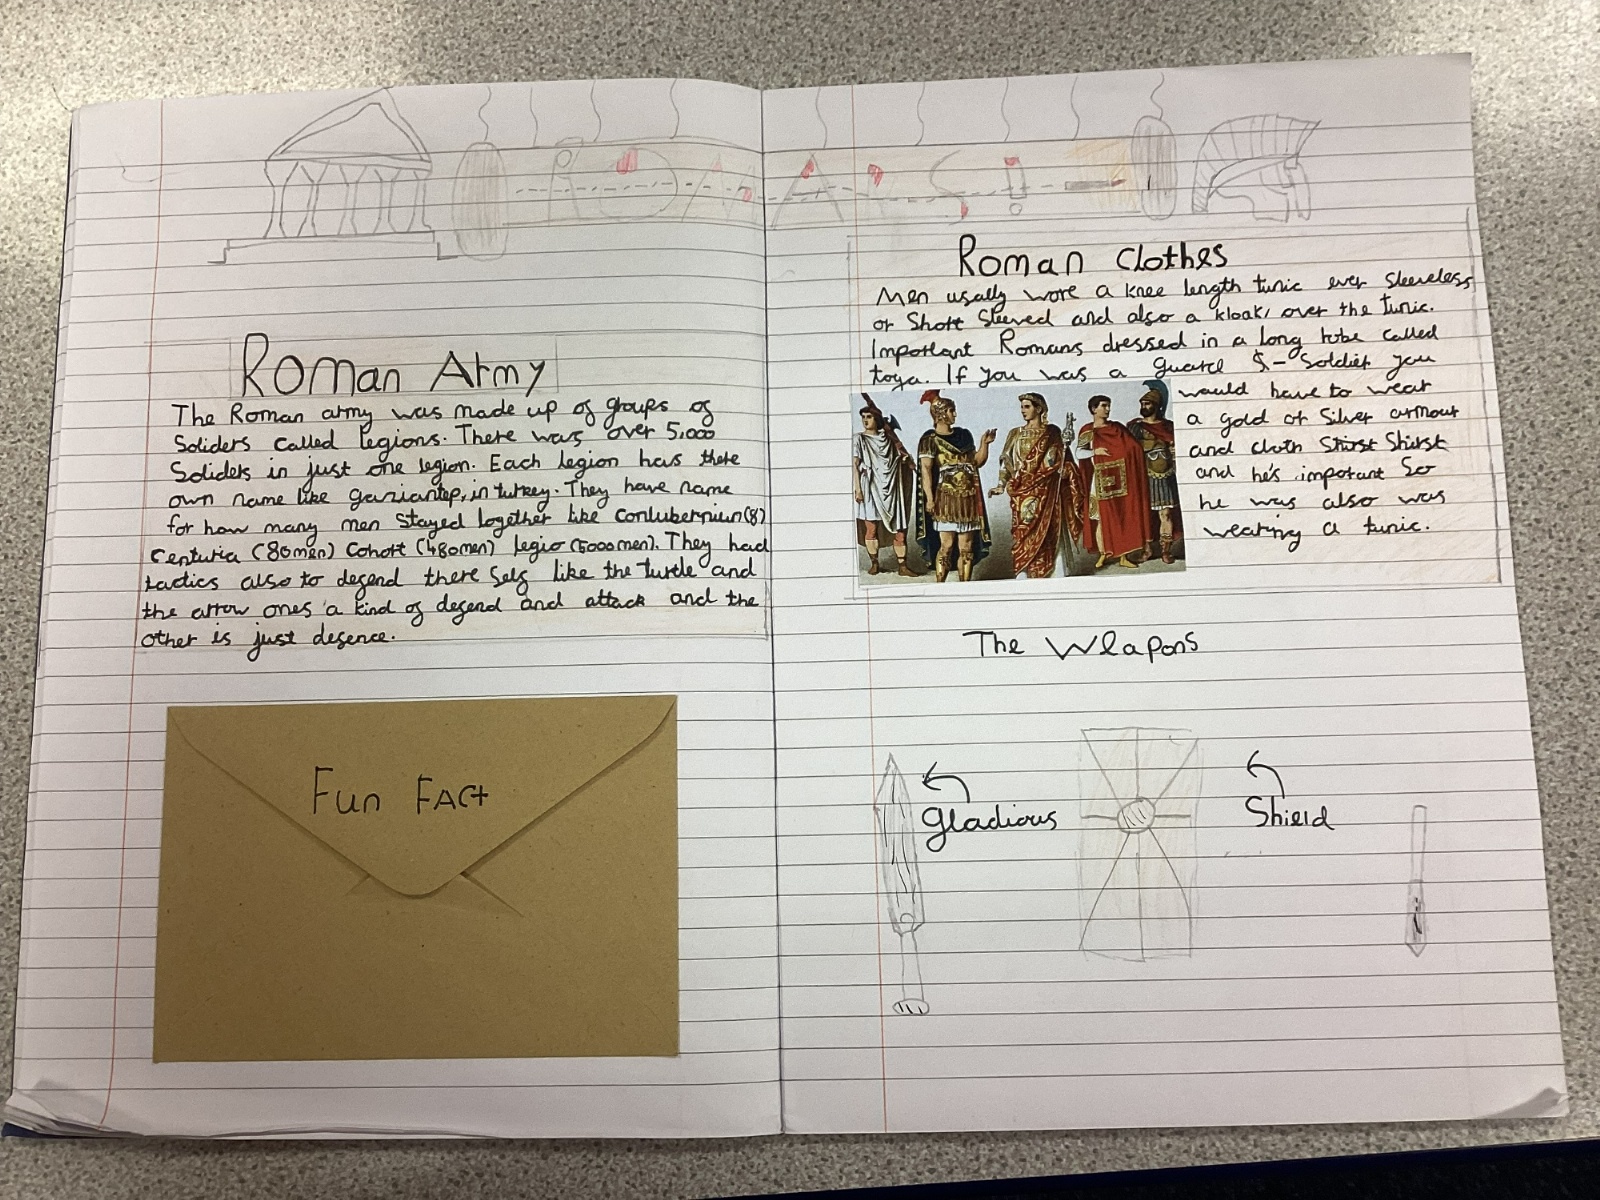 ROMANS!
Roman Army
The Roman army was made up of groups of
Soliders called legions. There was over 5,000
Soliders in just one legion. Each legion has there
own name like gaziantep, in turkey. They have name
for how many men stayed together like conluberniun(8)
Centuria (80men) Cohort (480men) legio (5000men). They had
tactics also to defend there self like the turtle and
the arrow ones a kind of defend and attack and the
other is just defence.
Fun FAct
Roman Clothes
Men usally wore a knee length tunic ever sleeveless
or Short Sleeved and also a kloak, over the tunic.
Important Romans dressed in a long robe called
toga. If you was a guard & - Soldier you
would have to wear
a gold or Silver armour
and cloth Shirst Shirst
and he's important So
he was also was
wearing a tunic.
The Weapons
gladious
Shield